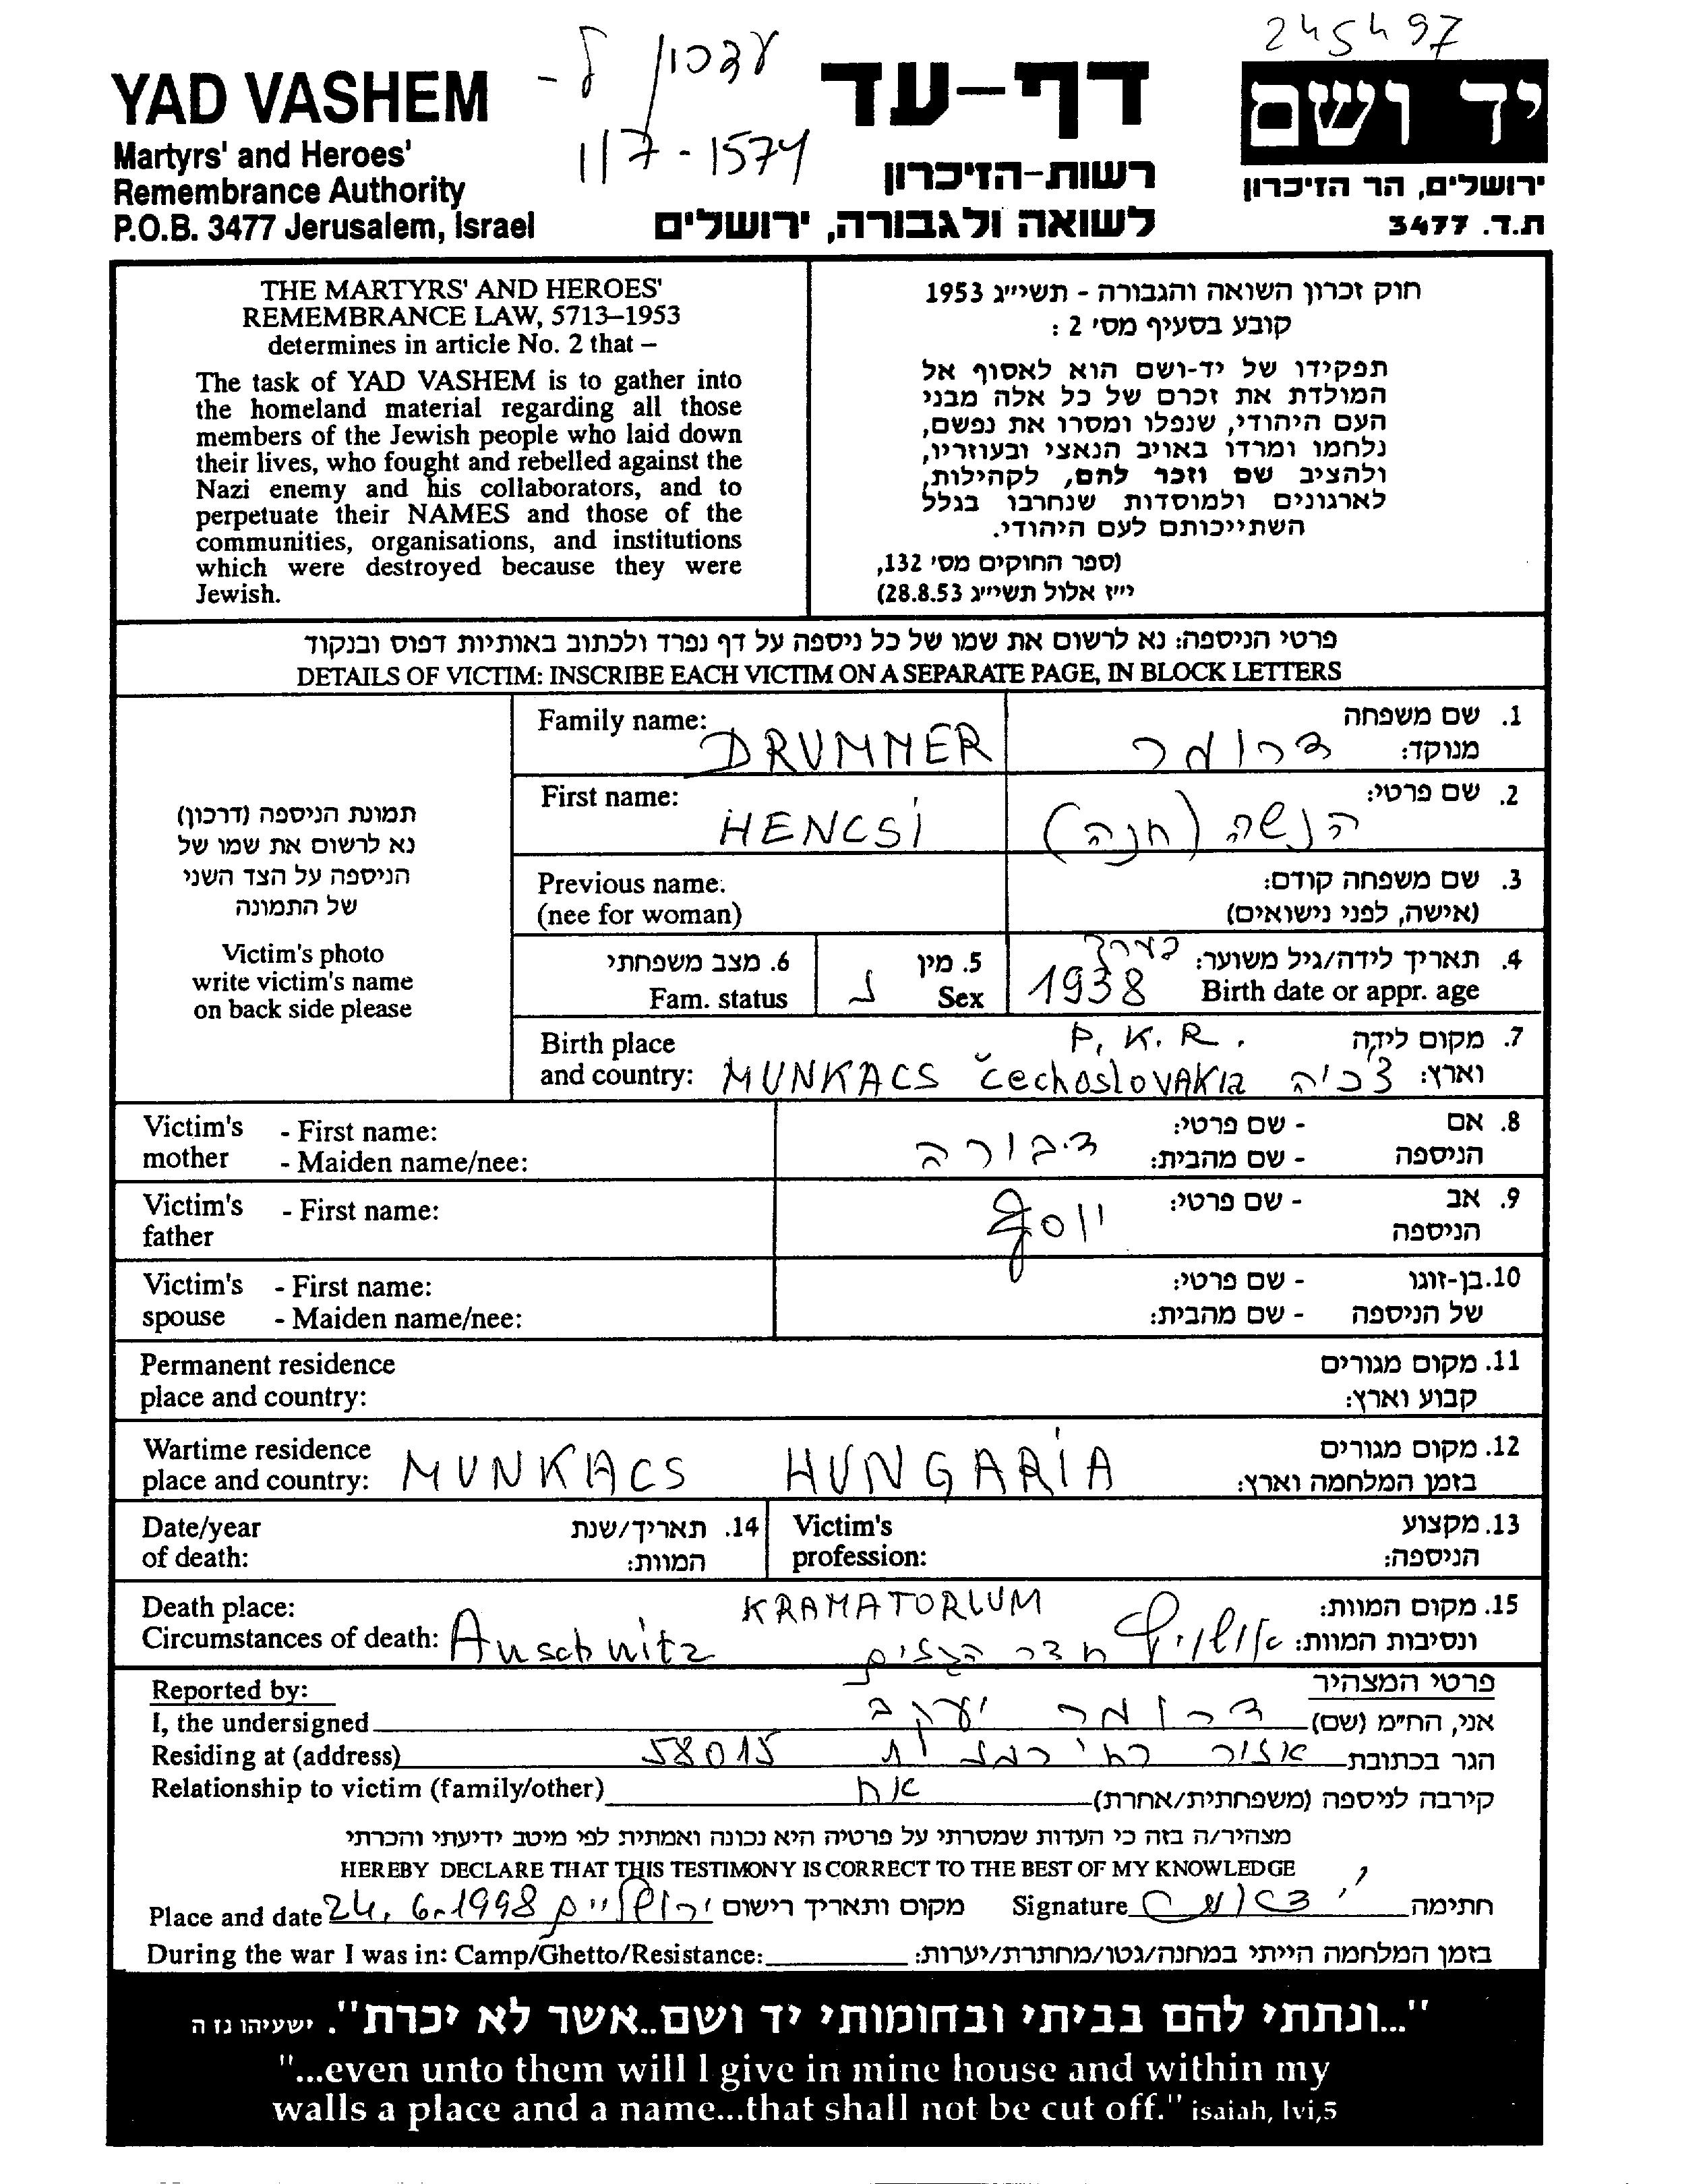 245497
עדכון ל-
117-1574
YAD VASHEM
Martyrs' and Heroes'
Remembrance Authority
P.O.B. 3477 Jerusalem, Israel
דף-עד
רשות-הזיכרון
לשואה ולגבורה, ירושלים
יד ושם
ירושלים, הר הזיכרון
ת.ד. 3477
THE MARTYRS' AND HEROES'
REMEMBRANCE LAW, 5713–1953
determines in article No. 2 that –
The task of YAD VASHEM is to gather into
the homeland material regarding all those
members of the Jewish people who laid down
their lives, who fought and rebelled against the
Nazi enemy and his collaborators, and to
perpetuate their NAMES and those of the
communities, organisations, and institutions
which were destroyed because they were
Jewish.
חוק זכרון השואה והגבורה - תשי"ג 1953
קובע בסעיף מס' 2 :
תפקידו של יד-ושם הוא לאסוף אל
המולדת את זכרם של כל אלה מבני
העם היהודי, שנפלו ומסרו את נפשם,
נלחמו ומרדו באויב הנאצי ובעוזריו,
ולהציב שם וזכר להם, לקהילות,
לארגונים ולמוסדות שנחרבו בגלל
השתייכותם לעם היהודי.
(ספר החוקים מס' 132,
י"ז אלול תשי"ג 28.8.53)
פרטי הניספה: נא לרשום את שמו של כל ניספה על דף נפרד ולכתוב באותיות דפוס ובנקוד
DETAILS OF VICTIM: INSCRIBE EACH VICTIM ON A SEPARATE PAGE, IN BLOCK LETTERS
תמונת הניספה (דרכון)
נא לרשום את שמו של
הניספה על הצד השני
של התמונה
Victim's photo
write victim's name
on back side please
Family name: DRUMMER דרומר 1. שם משפחה
מנוקד:
First name: HENCSI הנשה (חנה) 2. שם פרטי:
Previous name: 3. שם משפחה קודם:
(nee for woman) (אישה, לפני נישואים)
6. מצב משפחתי 5. מין בערך 4. תאריך לידה/גיל משוער:
Fam. status נ Sex 1938 Birth date or appr. age
Birth place P. K. R. 7. מקום לידה
and country: MUNKACS čechoslovAKia צ'כיה וארץ:
Victim's - First name: - שם פרטי: 8. אם
mother - Maiden name/nee: דבורה - שם מהבית: הניספה
Victim's - First name: יוסף - שם פרטי: 9. אב
father הניספה
Victim's - First name: - שם פרטי: 10. בן-זוגו
spouse - Maiden name/nee: - שם מהבית: של הניספה
Permanent residence 11. מקום מגורים
place and country: קבוע וארץ:
Wartime residence 12. מקום מגורים
place and country: MUNKACS HUNGARIA בזמן המלחמה וארץ:
Date/year 14. תאריך/שנת Victim's 13. מקצוע
of death: המוות: profession: הניספה:
Death place: KRAMATORIUM 15. מקום המוות:
Circumstances of death: Auschwitz אושוויץ חדר הגזים ונסיבות המוות:
Reported by: פרטי המצהיר
I, the undersigned דרומר יעקב אני, הח"מ (שם)
Residing at (address) 58015 הגר בכתובת
Relationship to victim (family/other) אח קירבה לניספה (משפחתית/אחרת)
מצהיר/ה בזה כי העדות שמסרתי על פרטיה היא נכונה ואמתית לפי מיטב ידיעתי והכרתי
HEREBY DECLARE THAT THIS TESTIMONY IS CORRECT TO THE BEST OF MY KNOWLEDGE
Place and date 24.6.1998 ירושליים מקום ותאריך רישום Signature חתימה
During the war I was in: Camp/Ghetto/Resistance: בזמן המלחמה הייתי במחנה/גטו/מחתרת/יערות:
"...ונתתי להם בביתי ובחומותי יד ושם..אשר לא יכרת". ישעיהו נז ה
"...even unto them will I give in mine house and within my
walls a place and a name...that shall not be cut off." isaiah, lvi,5